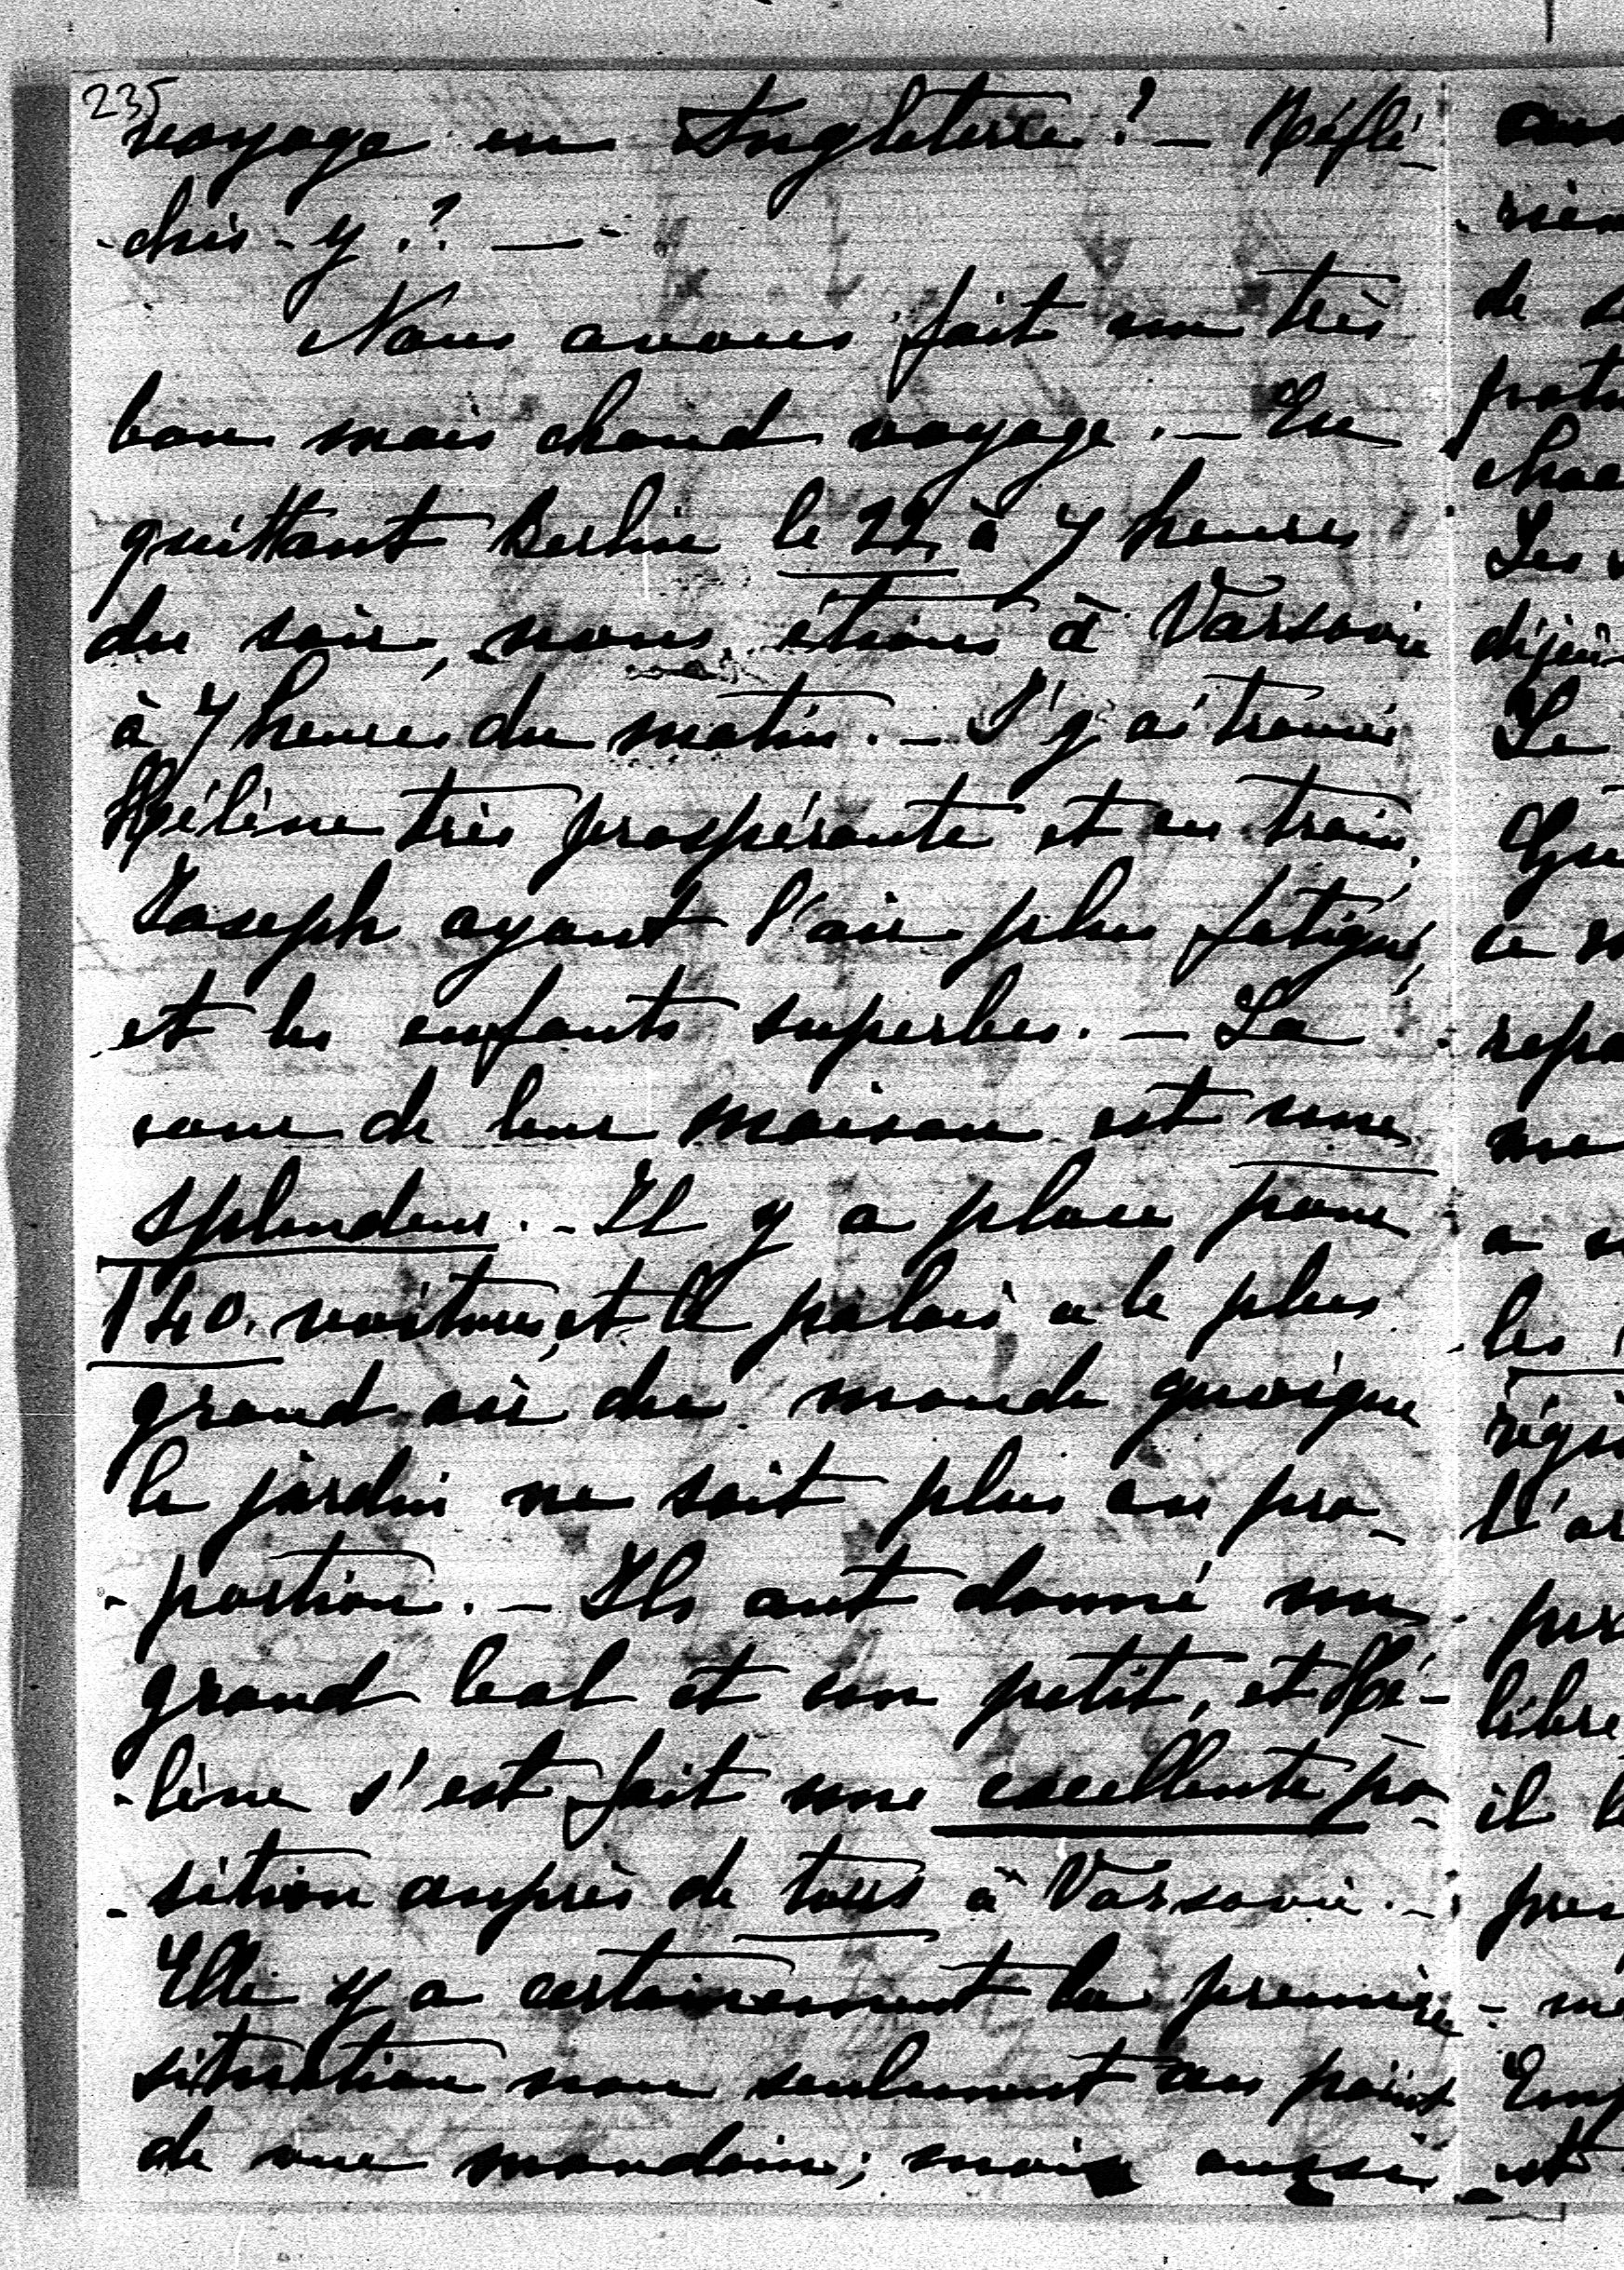 235
voyage en Angleterre ? — Réflé-
-chis-y !! —
Nous avons fait un très
bon mais chaud voyage. — En
quittant Berlin le 22 à 7 heures
du soir, nous étions à Varsovie
à 7 heures du matin. — J'y ai trouvé
Hélène très prospérante et en train,
Joseph ayant l'air plus fatigué,
et les enfants superbes. — La
cour de leur maison est une
splendeur. — Il y a place pour
140 voitures, et le palais a le plus
grand air du monde quoique
le jardin ne soit plus en pro-
-portion. — Ils ont donné un
grand bal et un petit, et Hé-
-lène s'est fait une excellente po-
-sition auprès de tous à Varsovie. —
Elle y a certainement la première
situation non seulement au point
de vue mondain ; mais aussi